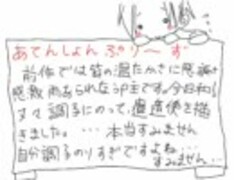 あてんしょん ぷりーず
前作では皆の温たかさに感激
感激雨あられなうp主です。今日和!
すぐ調子にのって、還遺使を描
きました。…本当すみません
自分調子のりすぎですよね…
すみません…